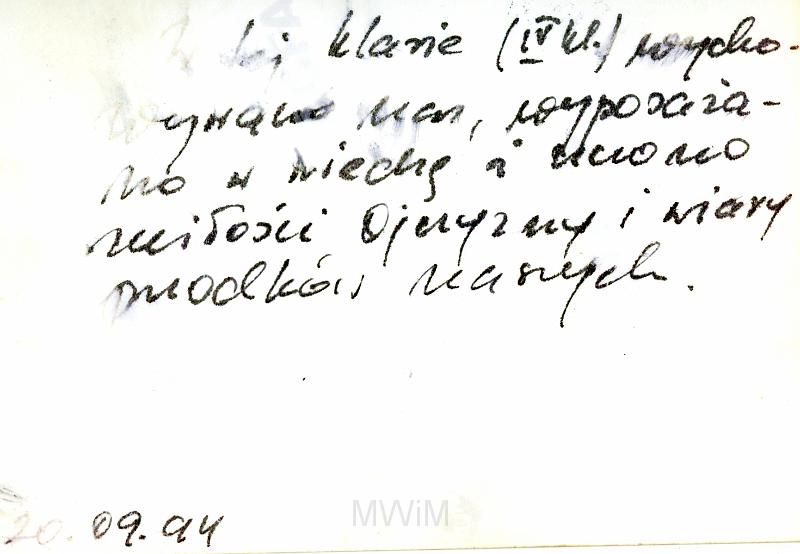 tej klasie (IV kl.) wycho-
wywano nas, wyposaża-
no w wiedzę i uczono
miłości Ojczyzny i wiary
przodków naszych.
20.09.94
MWiM